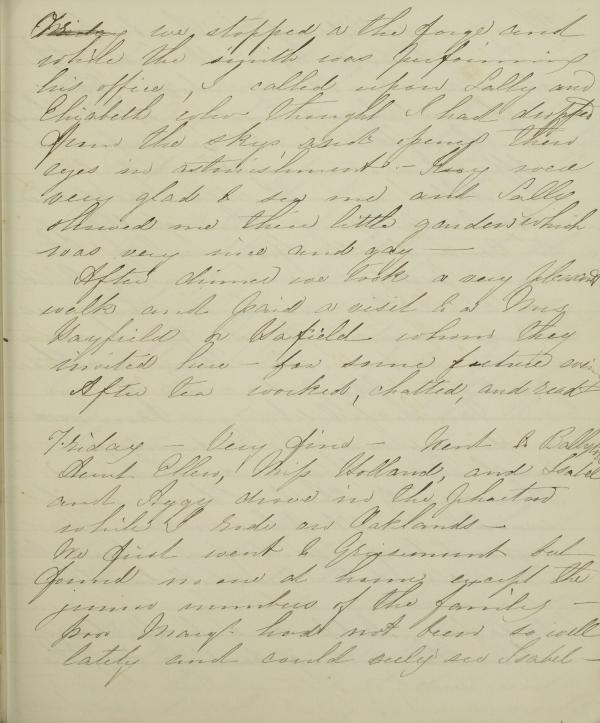 we stopped a the forge and
while the smith was performing
his office, I called upon Sally and
Elizabeth who thought I had dropped
from the skys and opened their
eyes in astonishment - they were
very glad to see me and Sally
showed me their little garden which
was very nice and gay —
After dinner we took a very pleasant
walk and paid a visit to a Mrs
Hayfield or Hafield whom they
invited here - for some future
After tea worked, chatted, and read
Friday - Very fine - Went to
Aunt Ellen, Miss Holland, and Isabel
and Aggy drove in the phaeton
while I rode on Oaklands -
We first went to but
found no one at home except the
junior members of the family -
poor Mary had not been so well
lately and could only see Isabel -